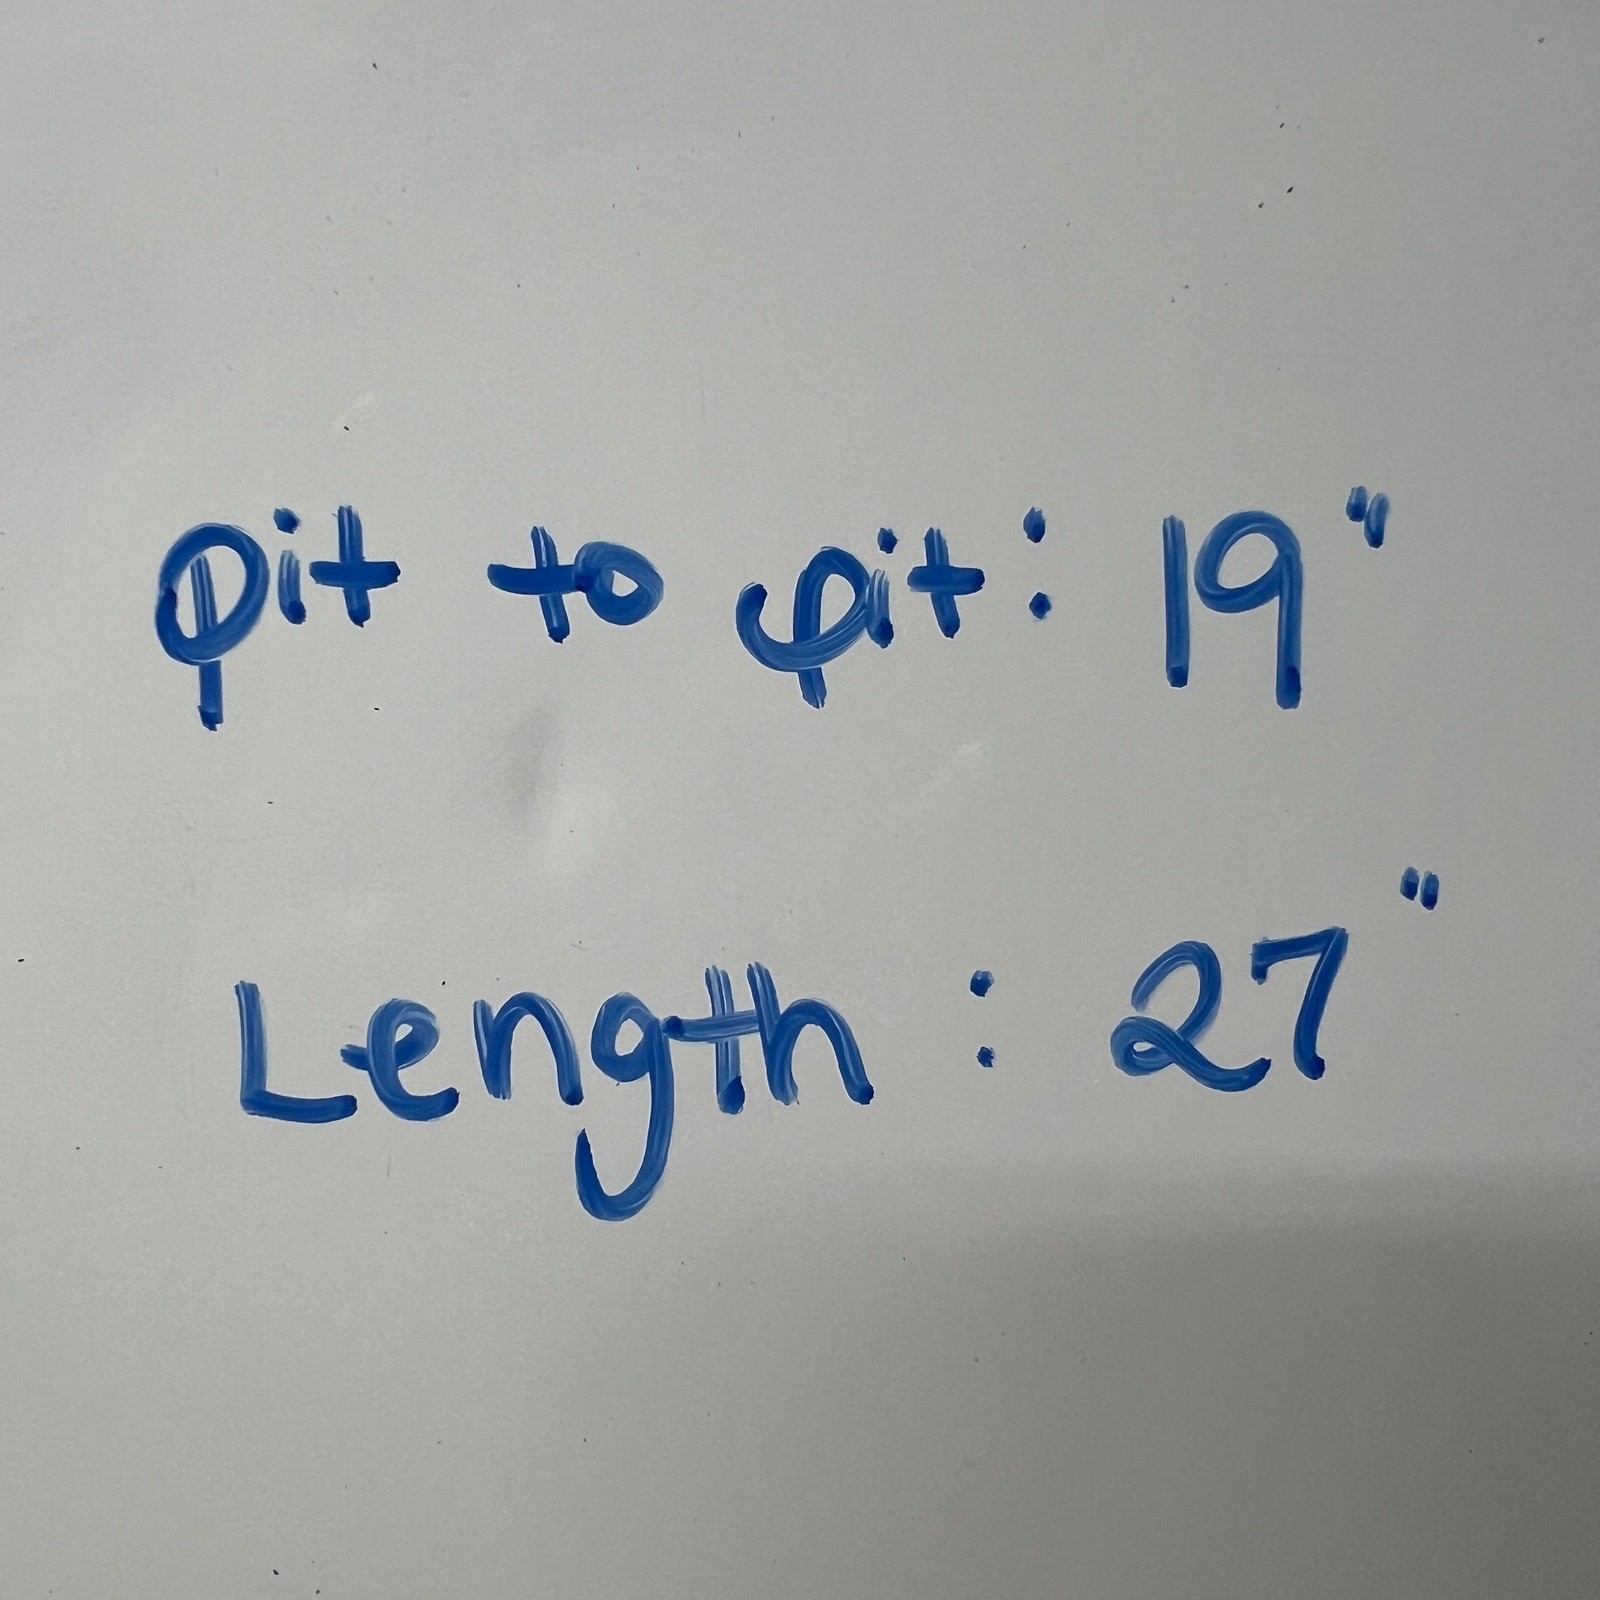 pit to pit: 19"
Length : 27"